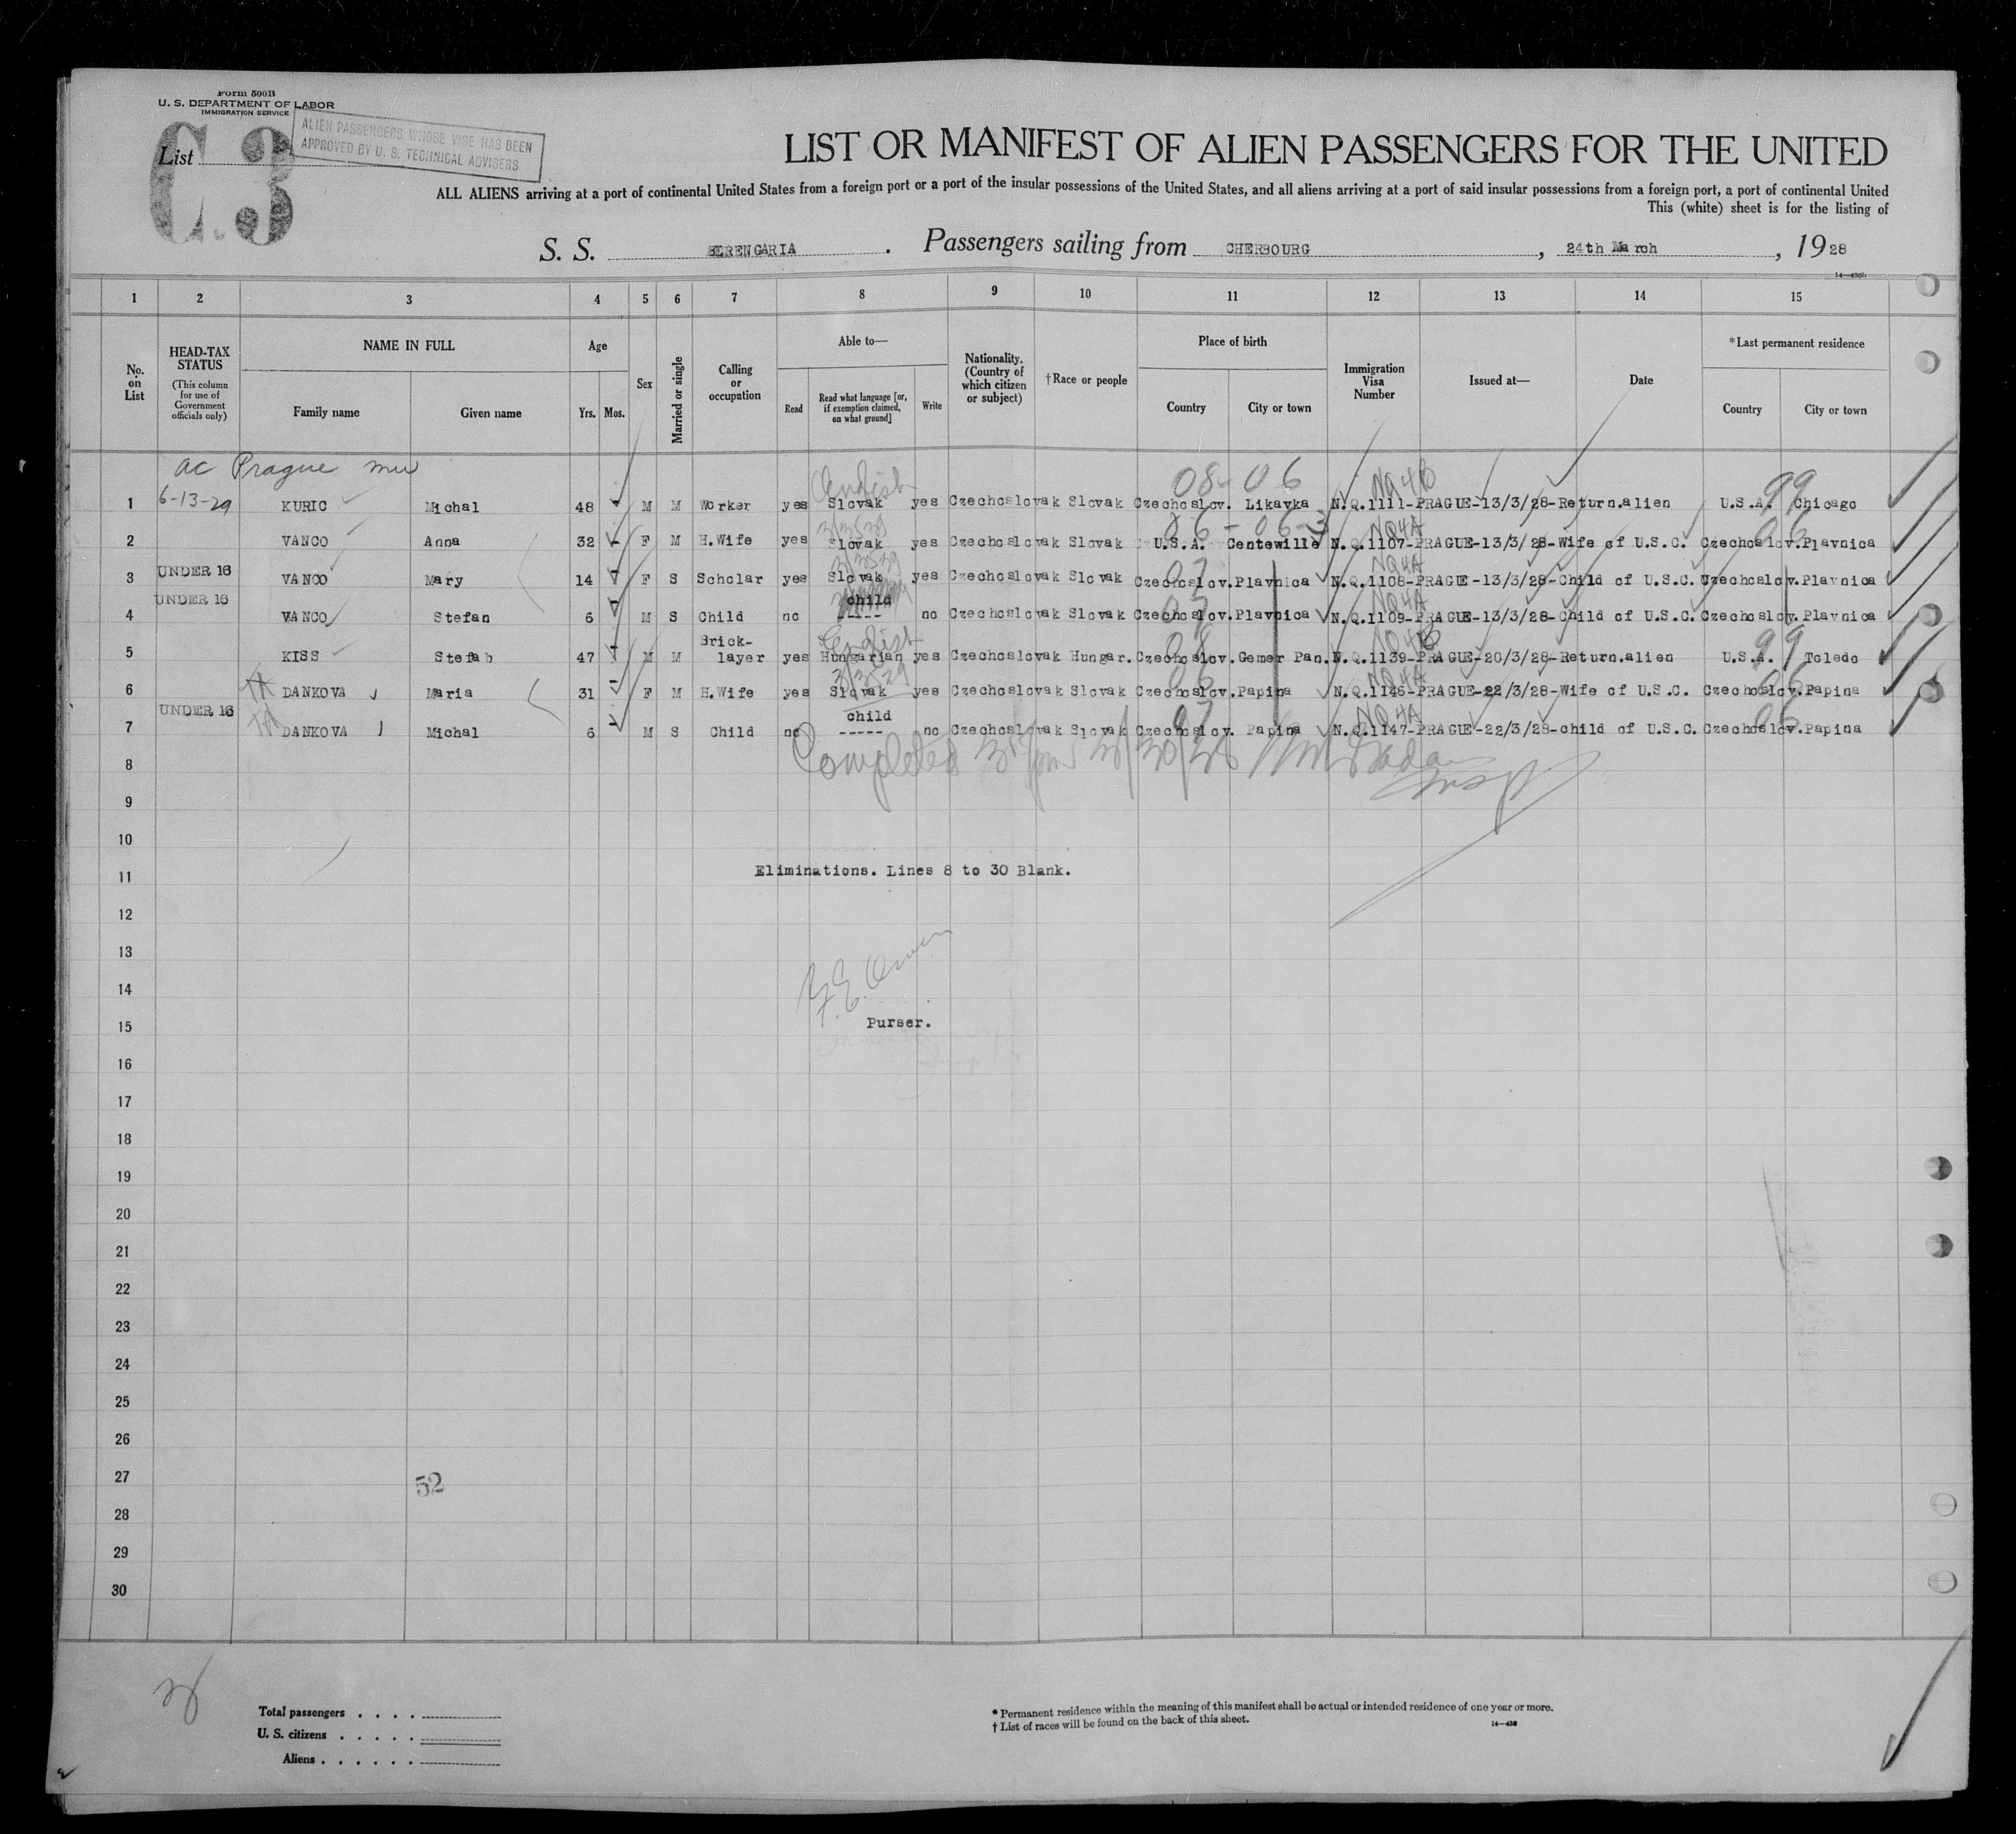 Form 500B
U. S. DEPARTMENT OF LABOR
IMMIGRATION SERVICE
List
C.3
ALIEN PASSENGERS WHOSE VISE HAS BEEN
APPROVED BY U. S. TECHNICAL ADVISERS
LIST OR MANIFEST OF ALIEN PASSENGERS FOR THE UNITED
ALL ALIENS arriving at a port of continental United States from a foreign port or a port of the insular possessions of the United States, and all aliens arriving at a port of said insular possessions from a foreign port, a port of continental United
This (white) sheet is for the listing of
S. S. BERENGARIA . Passengers sailing from CHERBOURG , 24th March , 19 28
1 2 3 4 5 6 7 8 9 10 11 12 13 14 15
No. on List
HEAD-TAX STATUS (This column for use of Government officials only)
NAME IN FULL
Family name Given name
Age
Yrs. Mos.
Sex
Married or single
Calling or occupation
Able to—
Read
Read what language [or, if exemption claimed, on what ground]
Write
Nationality. (Country of which citizen or subject)
†Race or people
Place of birth
Country City or town
Immigration Visa Number
Issued at—
Date
*Last permanent residence
Country City or town
ac Prague
08-06 NQ4B 99
1 6-13-29 KURIC Michal 48 M M Worker yes Slovak yes Czechoslovak Slovak Czechoslov. Likavka N.Q.1111-PRAGUE-13/3/28-Return.alien U.S.A. Chicago
NQ4A 06
2 VANCO Anna 32 F M H.Wife yes Slovak yes Czechoslovak Slovak U.S.A. Centewille N.Q.1107-PRAGUE-13/3/28-Wife of U.S.C. Czechoslov.Plavnica
NQ4A
3 UNDER 16 VANCO Mary 14 F S Scholar yes Slovak yes Czechoslovak Slovak Czechoslov.Plavnica N.Q.1108-PRAGUE-13/3/28-Child of U.S.C. Czechoslov.Plavnica
child NQ4A
4 UNDER 16 VANCO Stefan 6 M S Child no ----- no Czechoslovak Slovak Czechoslov.Plavnica N.Q.1109-PRAGUE-13/3/28-Child of U.S.C. Czechoslov.Plavnica
English 08 NQ4B 99
5 KISS Stefab 47 M M Brick-layer yes Hungarian yes Czechoslovak Hungar. Czechoslov.Gemer Pan. N.Q.1139-PRAGUE-20/3/28-Return.alien U.S.A. Toledo
06 NQ4A 06
6 DANKOVA Maria 31 F M H.Wife yes Slovak yes Czechoslovak Slovak Czechoslov.Papina N.Q.1146-PRAGUE-22/3/28-Wife of U.S.C. Czechoslov.Papina
child 07 NQ4A 06
7 UNDER 16 DANKOVA Michal 6 M S Child no ----- no Czechoslovak Slovak Czechoslov. Papina N.Q.1147-PRAGUE-22/3/28-child of U.S.C. Czechoslov.Papina
Completed
8
9
10
Eliminations. Lines 8 to 30 Blank.
11
12
13
14
Purser.
15
16
17
18
19
20
21
22
23
24
25
26
27 52
28
29
30
Total passengers . . . .
U. S. citizens . . . . .
Aliens . . . . . .
* Permanent residence within the meaning of this manifest shall be actual or intended residence of one year or more.
† List of races will be found on the back of this sheet.
14—430